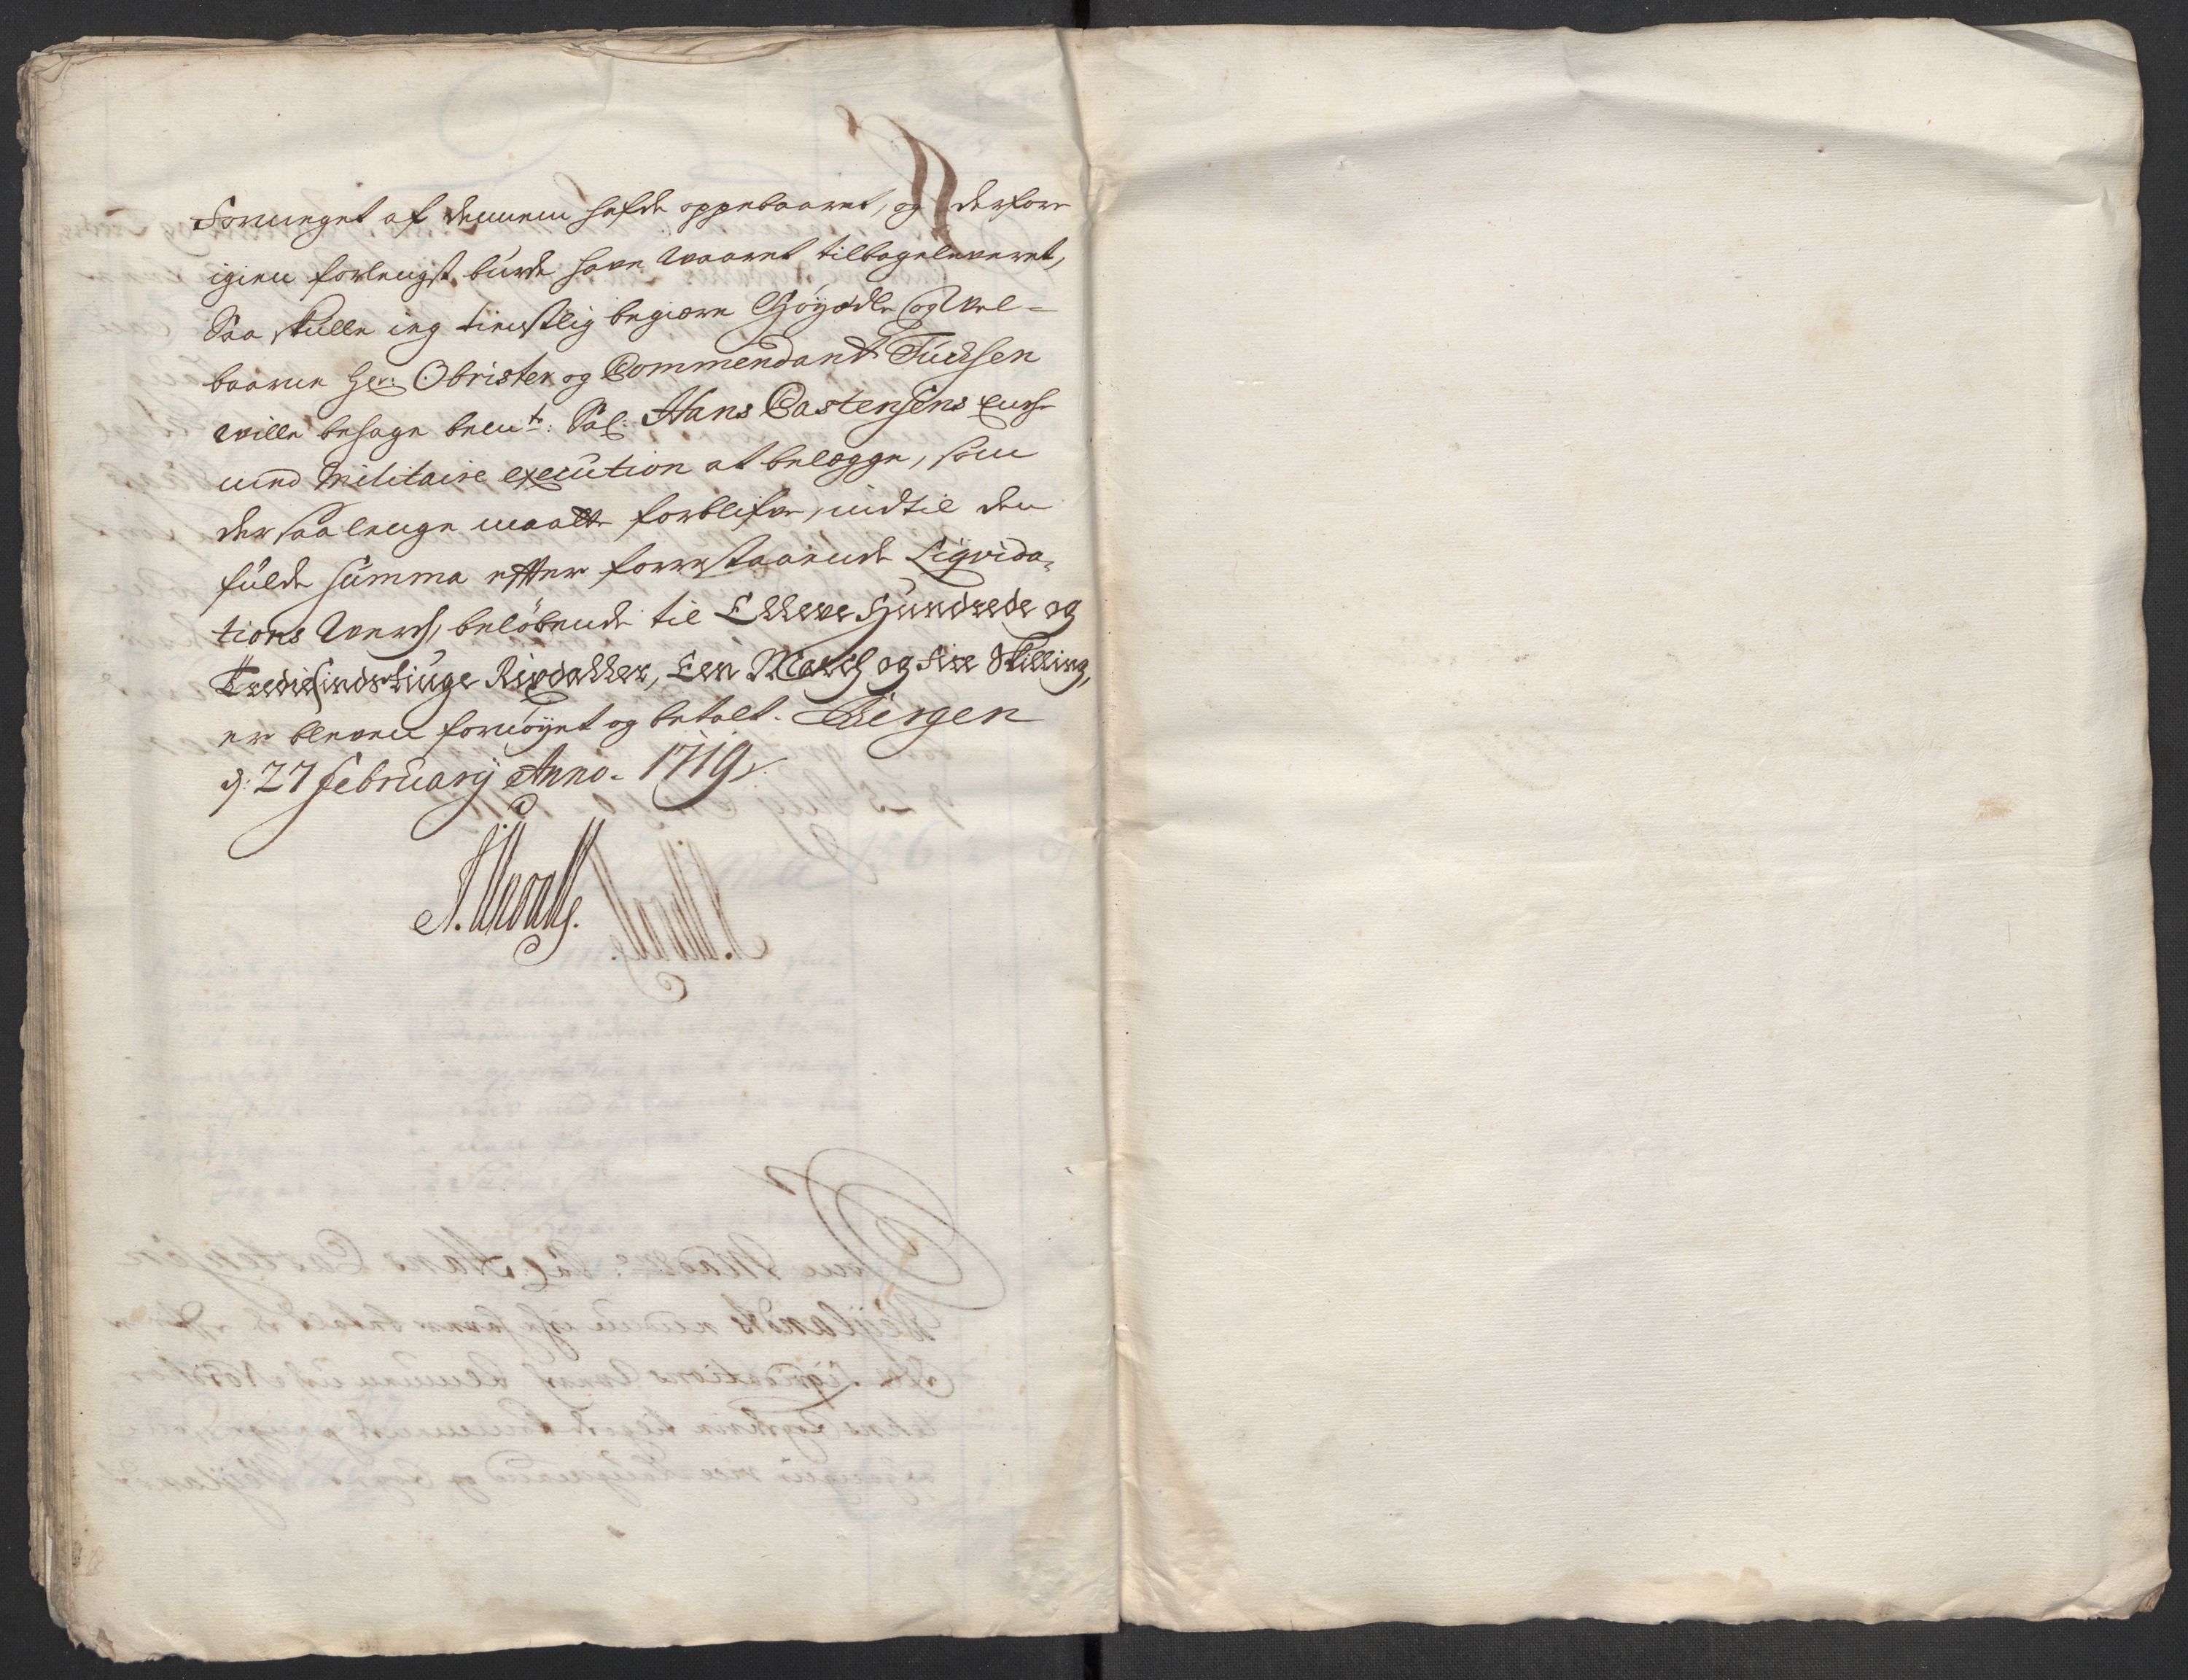 Formeget af dennem hafde oppebaaret, og derfore
igien forlengst burde have vaaret tilbageleveret,
Saa skulle ieg tienstlig begiære Høyædle og Vel-
baarne Her: Obrister og Commendant Tuchsen
ville behage bem:te Sal: Hans Castensens
med Militaire execution at belegge, som
der saalenge maatte forblifve, indtil den
fulde Summa efter forrestaaende Liqvida-
tions Verch, beløbende til Elleve Hundrede og
Tredie Sindstiuge Rixdaller, Een March og Fire Skilling,
er bleven fornøyet og betalt. Bergen
d: 27 February Anno. 1719.